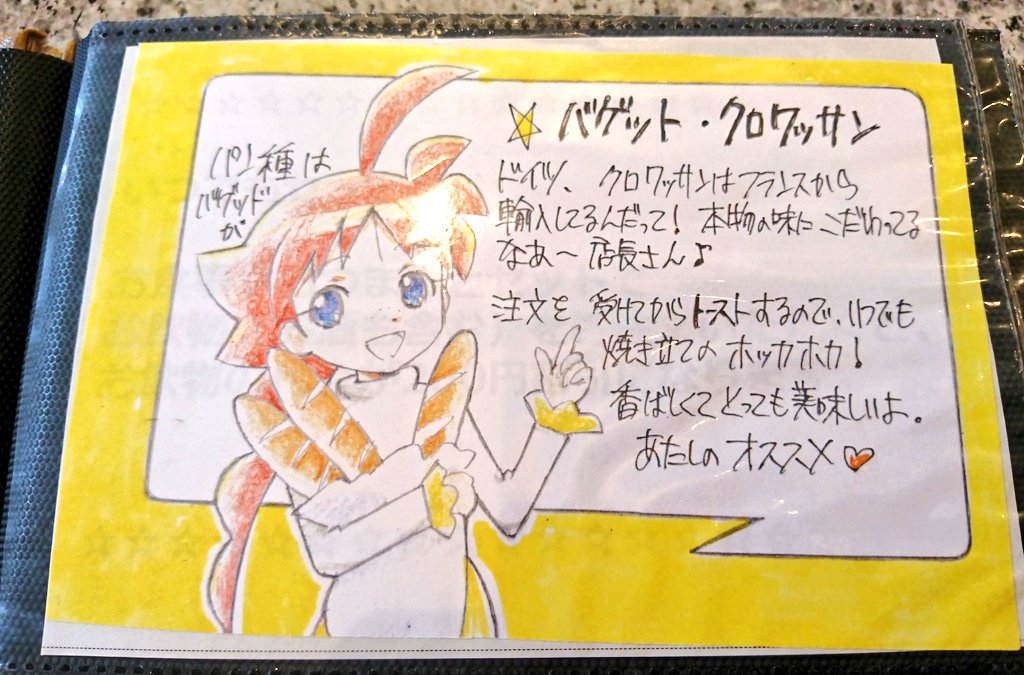 バゲット・クロワッサン
パン種は
バゲッドが
ドイツ、クロワッサンはフランスから
輸入してるんだって！本物の味にこだわってる
なあ〜店長さん♪
注文を受けてからトーストするので、いつでも
焼き立てのホッカホカ！
香ばしくてとっても美味しいよ。
あたしのオススメ♥